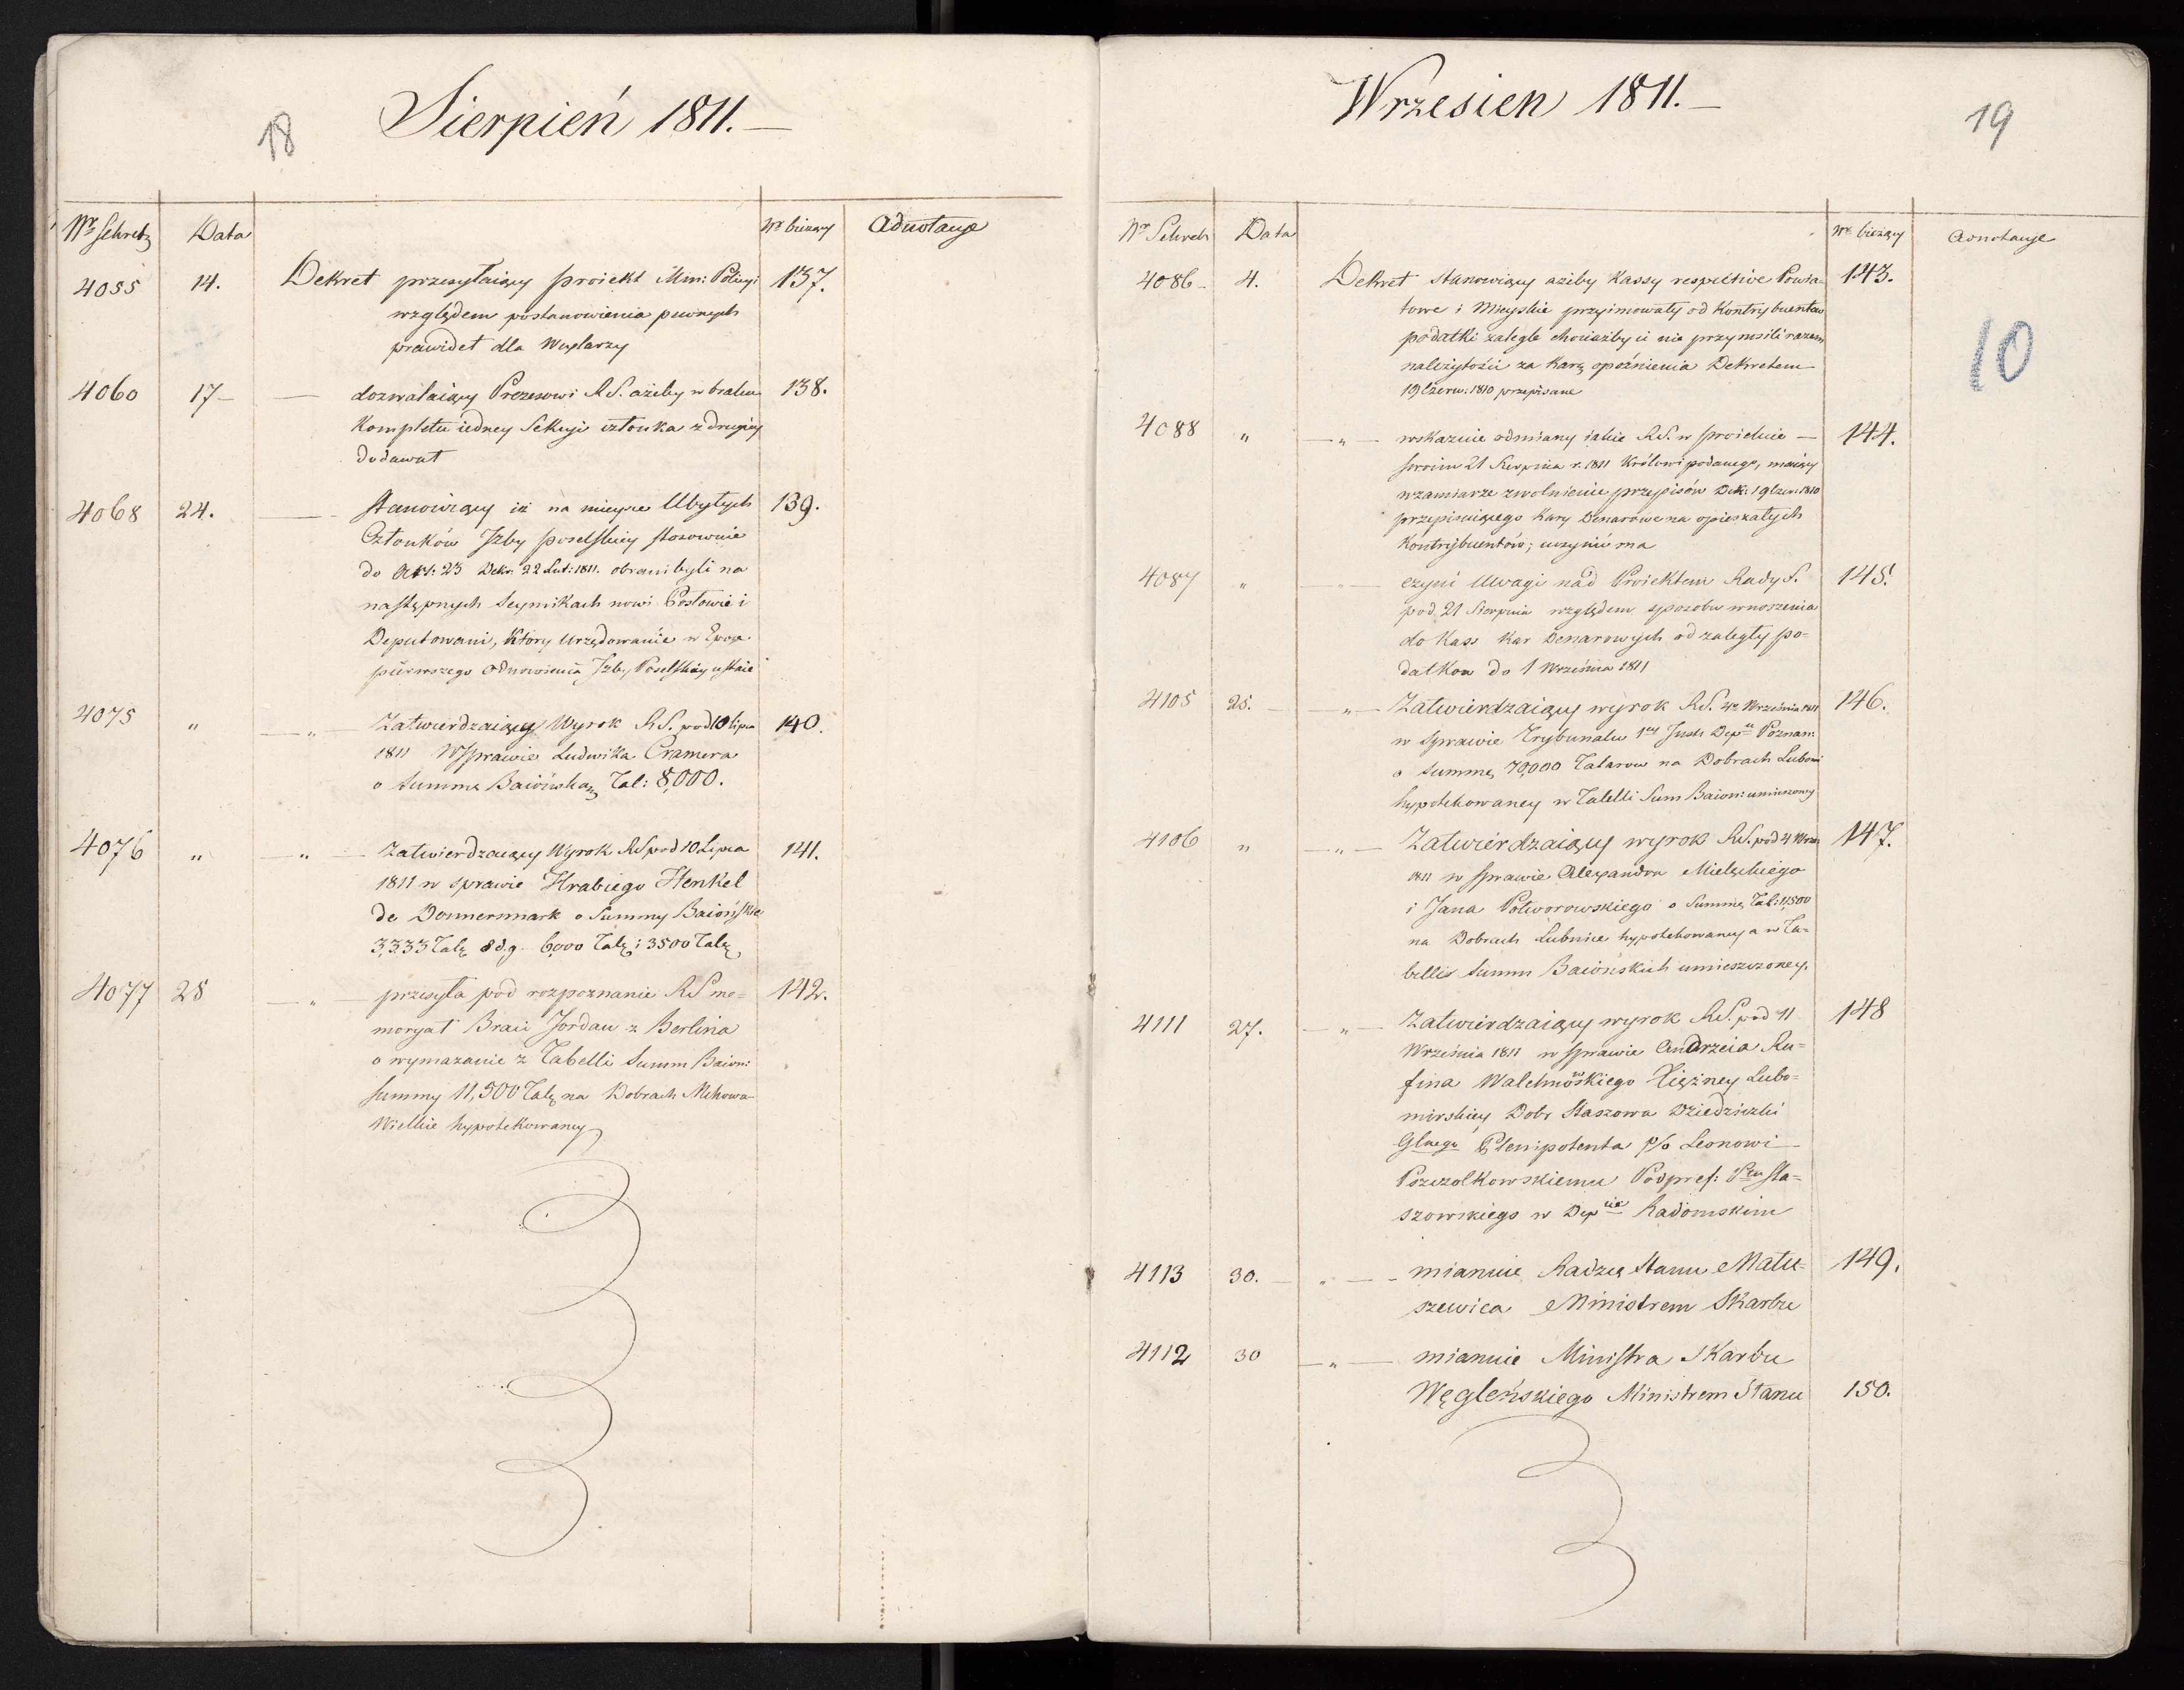 18
Sierpień 1811. —
Nr Sekret. Data Nr bieżący Adnotacye
4055 14. Dekret przesyłaiący proiekt Min: Policyi 137.
względem postanowienia pewnych
prawideł dla Węglarzy
4060 17 — — dozwalaiący Prezesowi R.S. ażeby w braku 138.
Kompletu iedney Sekcyi członka z drugiey
dodawał
4068 24. — stanowiący iż na mieysce Ubyłych 139.
Członków Izby poselskiey stosownie
do Art: 23 Dekr. 22 Lut: 1811. obrani byli na
następnych Seymikach nowi Posłowie i
Deputowani, który Urzędowanie w Epoce
pierwszego Odnowienia Izby Poselskiey ustaie
4075 " — " — Zatwierdzaiący Wyrok R.S. pod 10 lipca 140.
1811 W Sprawie Ludwika Cramera
o Summę Baiońską Tal: 8,000.
4076 " — " — Zatwierdzaiący Wyrok RS pod 10 Lipca 141.
1811 w sprawie Hrabiego Henkel
de Donnersmark o Summy Baiońskie
3,333 Talę 8 d.g. 6,000 Talę i 3500 Talę
4077 28 — " — przesyła pod rozpoznanie RS me= 142.
moryał Braci Jordan z Berlina
o wymazanie z Tabelli Summ Baioń:
summy 11,500 Talę na Dobrach
Wielkie hypotekowaney
Wrzesien 1811. —
19
Nr Sekrets Data Nr bieżący Adnotacye
4086 — 4. Dekret stanowiący ażeby Kassy respective Powia= 143.
towe i Mieyskie przyimowały od Kontrybuentów
podatki zaległe chociażby ci nie przynosili razem
należytości za karę opóźnienia Dekretem
19 Czerw: 1810 przepisane
10
4088 " — " — wskazuie odmiany iakie R.S. w proiekcie — 144.
swoim 21 Sierpnia r. 1811 Królowi podanego, maiący
wzamiarze zwolnienie przepisów Dekr: 19 Czer: 1810
przepisuiącego Kary Denarowe na opieszałych
Kontrybuentów; uczynić ma
4087 " — czyni Uwagi nad Proiektem Rady S. 145.
pod 21 Sierpnia względem sposobu wnoszenia
do Kass Kar Denarowych od zaległy po=
datkow do 1 Września 1811
4105 25. — — " — Zatwierdzaiący wyrok R.S. 4go Września 1811 146.
w sprawie Trybunału 1ey Inst: Depu Poznań:
o summę 70,000 Talarow na Dobrach
hypotekowaney w Tabelli Sum Baioń: umieszczoney
4106 " — " — Zatwierdzaiący wyrok R.S. pod 4 Wrze: 147.
1811 w sprawie Alexandra Mielęckiego
i Jana Potworowskiego o Summę Tal:
na Dobrach Lubnice hypotekowaney a w Ta=
bellis summ Baiońskich umieszczoney.
4111 27. — " — Zatwierdzaiący wyrok R.S. pod 11 148
Września 1811 w sprawie Andrzeia Ru=
fina Walchnowskiego Xiężney Lubo=
mirskiey Dobr Staszowa Dziedziczki
Glnego Plenipotenta p/o Leonowi
Pszczolkowskiemu Podpref: Ptu Sta=
szowskiego w Depcie Radomskim
4113 30. — " — mianuie Radzcę Stanu Matu= 149.
szewica Ministrem Skarbu
4112 30 — " — mianuie Ministra Skarbu
Węgleńskiego Ministrem Stanu 150.